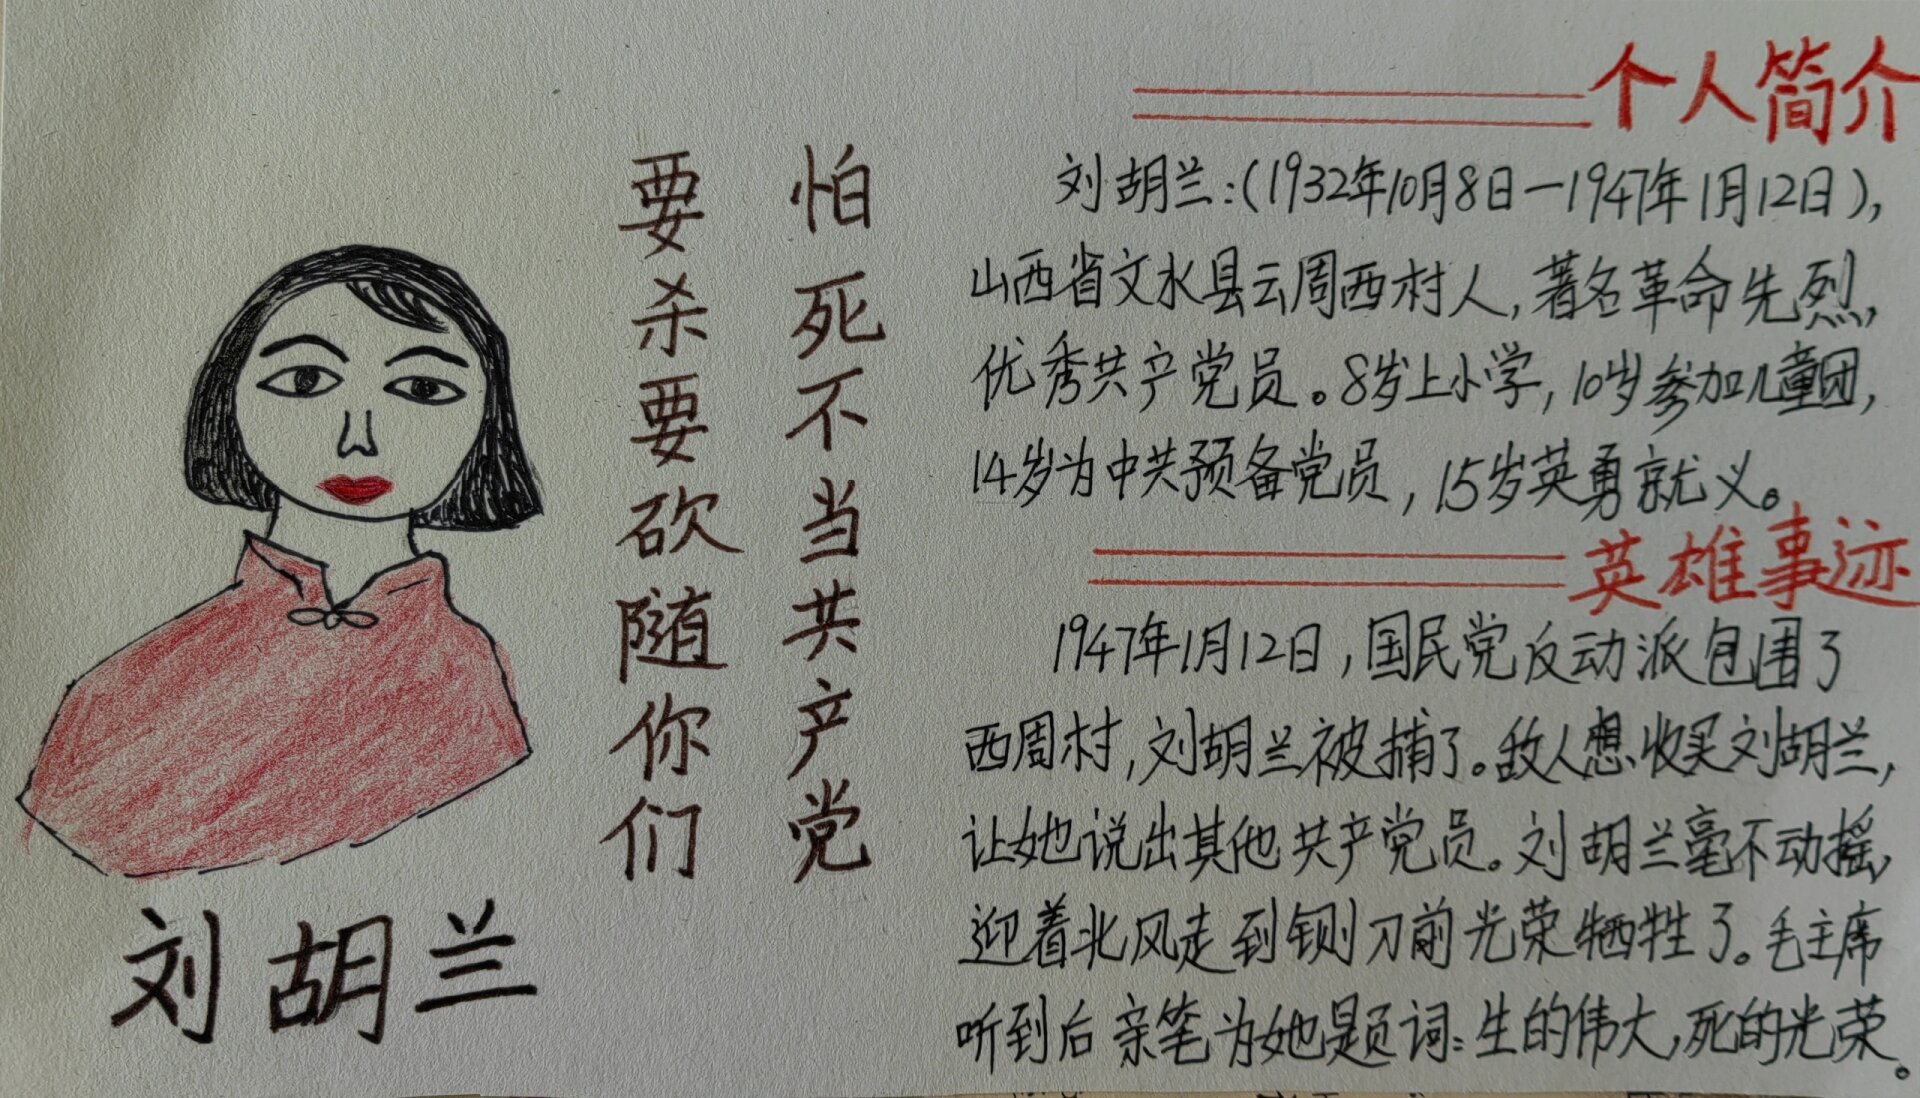 个人简介
刘胡兰:(1932年10月8日一1947年1月12日),
山西省文水县云周西村人,著名革命先烈,
优秀共产党员。8岁上小学,10岁参加儿童团,
14岁为中共预备党员,15岁英勇就义。
英雄事迹
1947年1月12日,国民党反动派包围了
西周村,刘胡兰被捕了。敌人想收买刘胡兰,
让她说出其他共产党员。刘胡兰毫不动摇,
迎着北风走到铡刀前光荣牺牲了。毛主席
听到后亲笔为她题词:生的伟大,死的光荣。
怕死不当共产党
要杀要砍随你们
刘胡兰